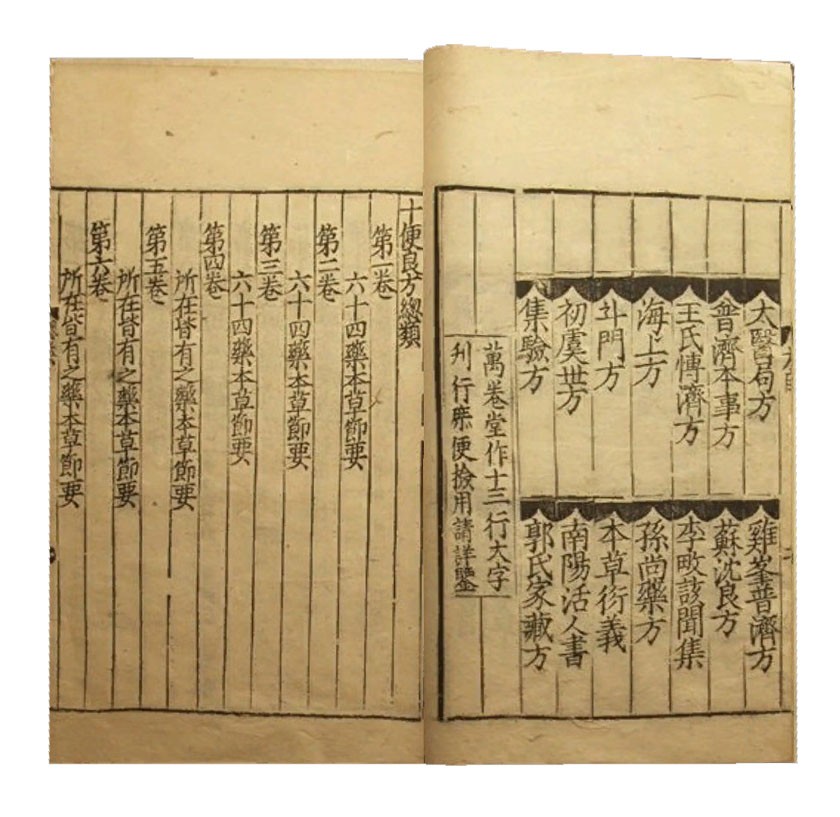 太醫局方
普濟本事方
王氏愽濟方
海上方
斗門方
初虞世方
集驗方
雞峯普濟方
蘇沈良方
李畋該聞集
孫尚藥方
本草衍義
南陽活人書
郭氏家藏方
萬卷堂作十三行大字
刋行庶便撿用請詳鑒
十便良方總類
第一卷
六十四藥本草節要
第二卷
六十四藥本草節要
第三卷
六十四藥本草節要
第四卷
所在皆有之藥本草節要
第五卷
所在皆有之藥本草節要
第六卷
所在皆有之藥本草節要